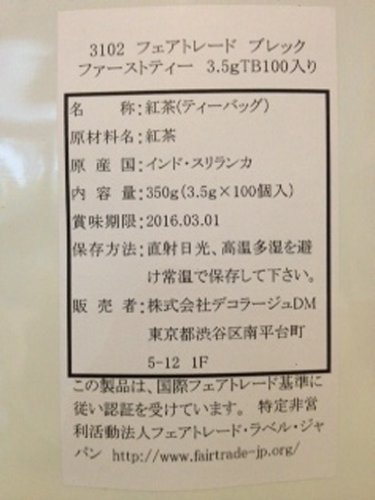 3102 フェアトレード ブレック
ファーストティー 3.5gTB100入り
名 称:紅茶(ティーバッグ)
原材料名:紅茶
原 産 国:インド・スリランカ
内 容 量:350g(3.5g×100個入)
賞味期限:2016.03.01
保存方法:直射日光、高温多湿を避
け常温で保存して下さい。
販 売 者:株式会社デコラージュDM
東京都渋谷区南平台町
5-12 1F
この製品は、国際フェアトレード基準に
従い認証を受けています。 特定非営
利活動法人フェアトレード・ラベル・ジャ
パン http://www.fairtrade-jp.org/